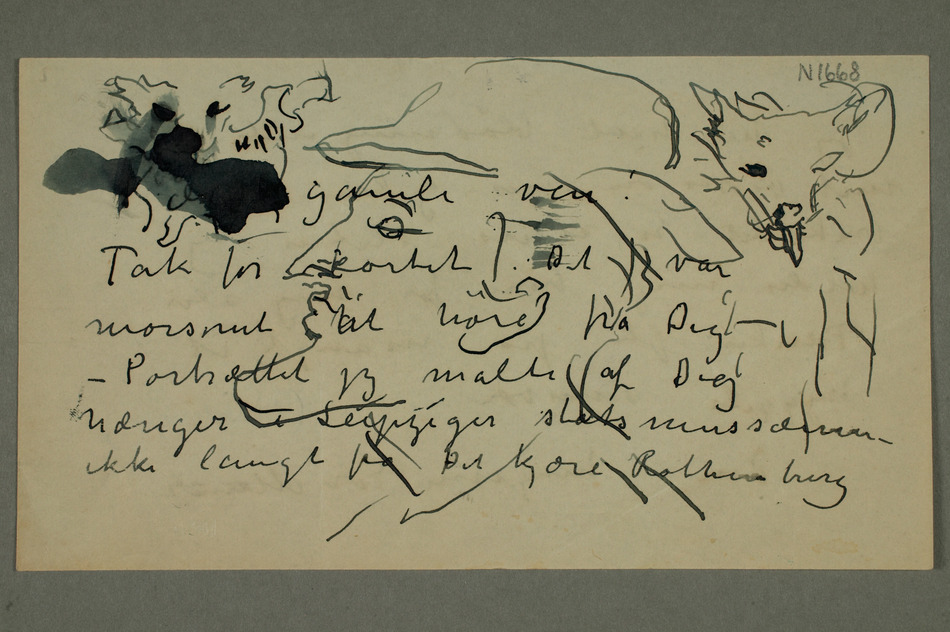 N 1668
gamle ven!
Tak for kortet. Det var
morsomt at höre fra Dig
– Portrættet jeg malte af Dig
hænger i Leipziger statsmussæum–
ikke langt fra Det kjære Rothenburg